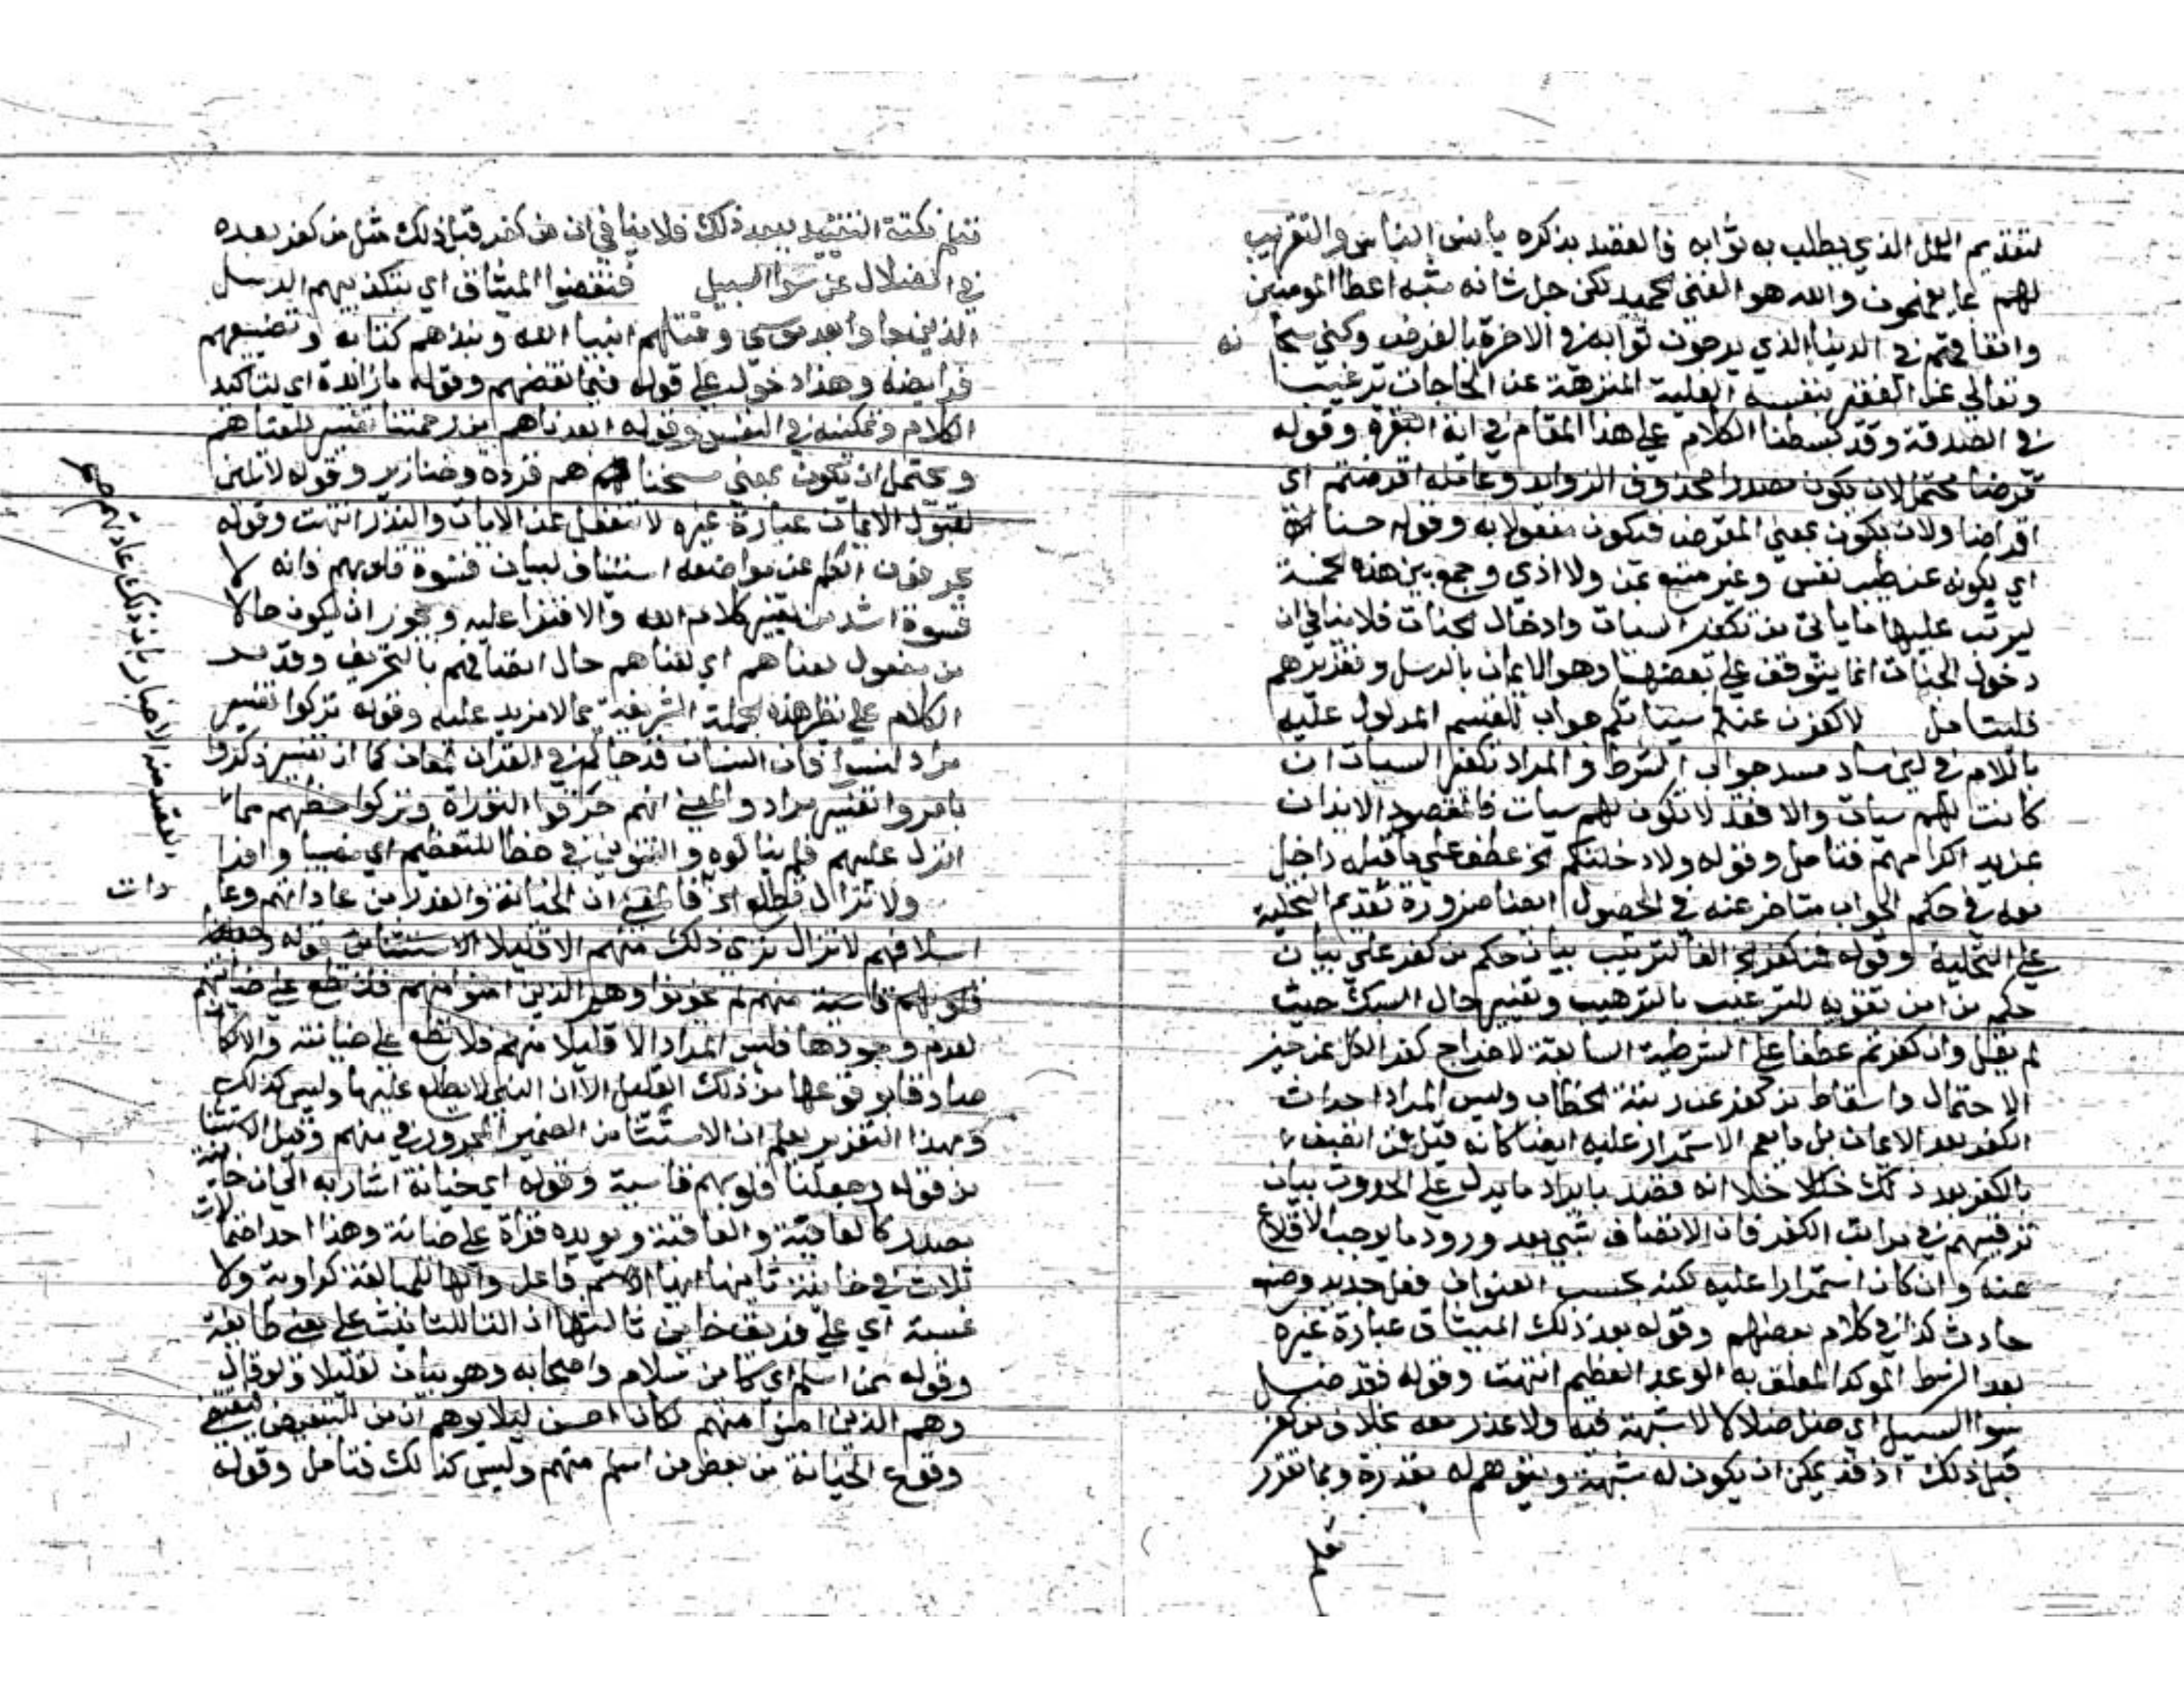 لتقديم المال الذي يطلب به ثوابه فالقصد بذكره يا بني الناس والتقريب
لهم بما يفهمون والله هو الغني الحميد لكن جل شانه شبه اعطا المومنين
وانفاقهم في الدنيا الذي يرجون ثوابه في الاخرة بالقرض وكني سبحا نه
وتعالي عن الفقير بنفسه العلية المنزهة عن الحاجات ترغيبا
في الصدقة وقد بسطنا الكلام علي هذا المقام في اية البقرة وقوله
قرضا محتمل لان يكون مصدرا محذوف الزوايد وعامله اقرضتم اي
اقراضا ولان يكون بمعني المقرض فيكون مفعولا به وقوله حسنا
اي يكون عن طيب نفس وغير متبع بمن ولا اذي وجمع بين هذه الخمسة
ليرتب عليها ما ياتي من تكفير السيات وادخال الجنات فلا ينافي ان
دخول الجنات انما يتوقف علي بعضها وهو الايمان بالرسل وتعزيرهم
فليتامل لاكفرن عنكم سيئاتكم جواب للقسم المدلول عليه
باللام في لئن ساد مسد جواب الشرط والمراد تكفير السيات ان
كانت لهم سيات والا فقد لا تكون لهم سيات فالمقصود الايذان
بمزيد اكرامهم فتامل وقوله ولادخلنكم الخ عطف علي ما قبله داخل
معه في حكم الجواب متاخر عنه في الحصول ايضا ضرورة تقديم التخلية
علي التحلية وقوله فمن كفر الخ الفا لترتيب بيان حكم من كفر علي بيان
حكم من امن تقوية للترغيب بالترهيب وتغيير حال السبك حيث
لم يقل وان كفرتم عطفا علي الشرطية السابقة لاخراج كفر الكل عن حيز
الاحتمال واسقاط من كفر عن رتبة الخطاب وليس المراد احداث
الكفر بعد الايمان بل ما يعم الاستمرار عليه ايضا كانه قيل فمن اتصف
بالكفر بعد ذلك خلا انه قصد بايراد ما يدل علي الحدوث بيان
ترقيهم في مراتب الكفر فان الاتصاف بشي بعد ورود ما يوجب الاقلاع
عنه وان كان استمرارا عليه لكنه بحسب العنوان فعل جديد وصنع
حادث كذا في كلام بعضهم وقوله بعد ذلك الميثاق عبارة غيره
بعد الشرط الموكد المعلق به الوعد العظيم انتهت وقوله فقد ضل
سوا السبيل اي ضل ضلالا لا شبهة فيه ولا عذر معه بخلاف من كفر
قبل ذلك اذ قد يمكن ان يكون له شبهة ويتوهم له معذرة وبما تقرر
تعلم نكتة التقييد ببعد ذلك فلا ينافي ان من كفر قبل ذلك مثل من كفر بعده
في الضلال عن سوا السبيل فنقضوا الميثاق اي بتكذيبهم الرسل
الذين جاوا بعد موسي وقتلهم انبيا الله ونبذهم كتابه وتضييعهم
فرايضه وهذا دخول علي قوله فبما نقضهم وقوله ما زايدة اي لتاكيد
الكلام وتمكينه في النفس وقوله ابعدناهم من رحمتنا تفسير للعناهم
ويحتمل ان تكون بمعني مسخناهم قردة وخنازير وقوله لا تلين
لقبول الايمان عبارة غيره لا تنفعل عن الايات والنذر انتهت وقوله
يحرفون الكلم عن مواضعه استيناف لبيان قسوة قلوبهم فانه لا
قسوة اشد من تغيير كلام الله والافترا عليه ويجوز ان يكون حالا
من مفعول لعناهم اي لعناهم حال اتصافهم بالتحريف وقد مر
الكلام علي نظير هذه الجملة الشريفة بما لا مزيد عليه وقوله تركوا تفسير
مراد لنسوا فان النسيان قد جا لهم في القران لمعان كما ان تفسير ذكروا
بامروا تفسير مراد والمعني انهم حرفوا التوراة وتركوا حظهم مما
انزل عليهم فلم ينالوه والتنوين في حظا للتعظيم اي نصيبا وافرا
ولا تزال تطلع الخ فالمعني ان الخيانة والغدر من عاداتهم وعا
دات
اسلافهم لا تزال تري ذلك منهم الا قليلا الاستثنا من قوله
لعدم وجودها فليس المراد الا قليلا منهم فلا تطلع علي خيانته والا كان
صادقا بوقوعها من ذلك القليل الا ان النبي لا يطلع عليها وليس كذلك
وبهذا التقرير يعلم ان الاستثنا من الضمير المجرور في منهم وقيل الاستثنا
من قوله وجعلنا قلوبهم قاسية وقوله اي خيانة اشار به الي ان خاينة
مصدر كالعافية والعاقبة ويويده قراة علي خيانة وهذا احد احتمالات
ثلاث في خاينة ثانيها انها اسم فاعل والها للمبالغة كراوية ولا
نسبة اي علي فريق خاين ثالثها ان التا للتانيث علي معني طايفة
وقوله ممن اسلم اي كابن سلام واصحابه وهو بيان لقليلا ولو قال
وهم الذين امنوا منهم لكان احسن ليلا يوهم ان من للتبعيض فيقتضي
وقوع الخيانة من بعض من اسلم منهم وليس كذلك فتامل وقوله